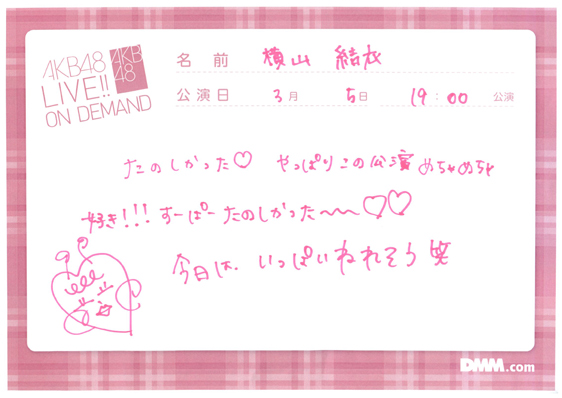 AKB48
LIVE!!
ON DEMAND
AKB
48
名前 横山 結衣
公演日 3月 5日 19:00 公演
たのしかった♡ やっぱりこの公演めちゃめちゃ
好き!!! すーぱーたのしかった〜〜♡♡
今日は、いっぱいねれそう 笑
DMM.com